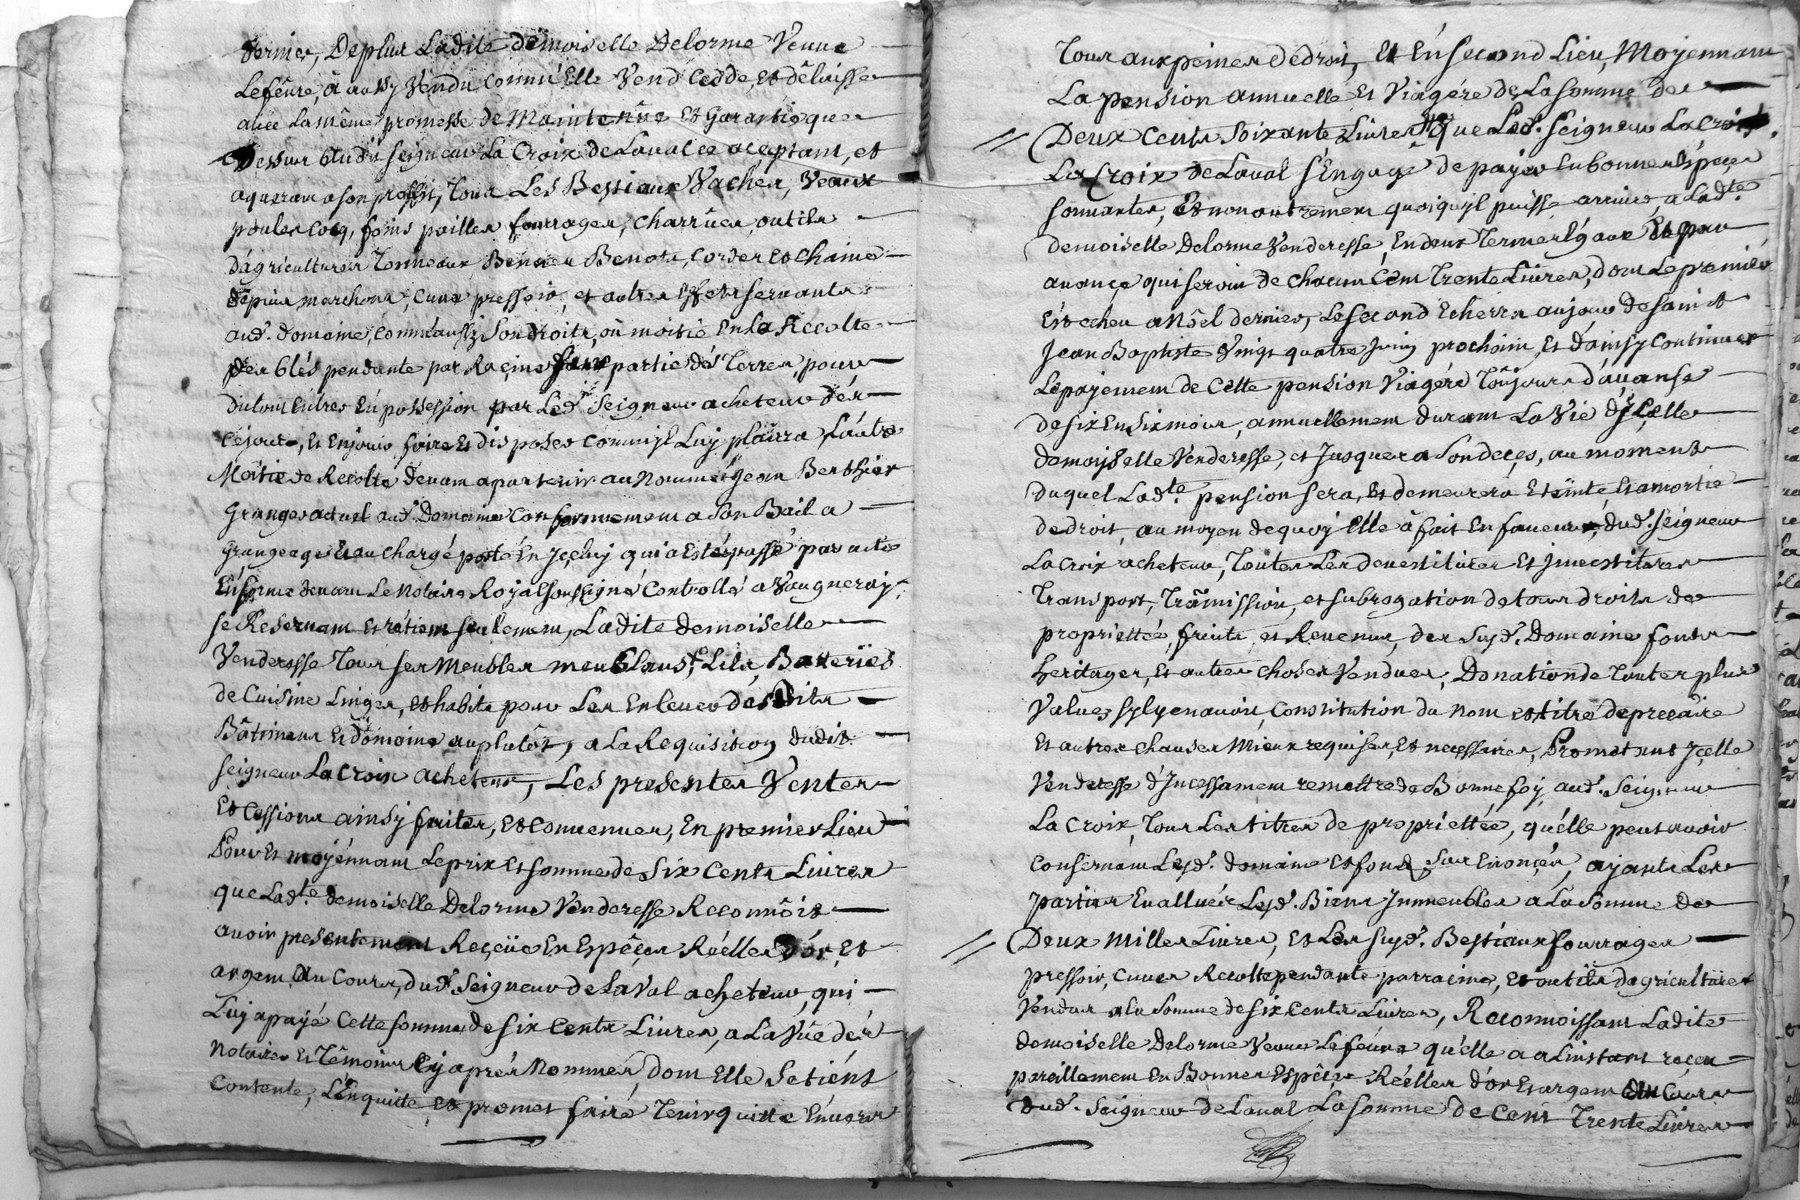 dernier, Deplus Ladite demoiselle Delorme Veuve
Lefêvre, à aussy Vendu Comm'Elle Vend Cedde, et délaisse
avec La même promesse de Maintenüe Et Garantie que
Dessus audit Seigneur La Croix de Laval ce aceptant, et
aquerant a son proffit, Tous Les Bestiaux Vaches, Veaux
poules Coq, foins pailles fourrages, Charrües, outils
D'agricultures Tonneaux Bennes Benots, Cordes et Chaine
cuve pressoir, et autres Effets servants
aud. domaine, Comm'aussy Son droits, où moitié En La Recolte
des blés pendante par Racines partie dés Terres, pour
du tout Entrer En possession par Led. Seigneur acheteur dés
Cejour, Et En jouir faire Et disposer Comm'yl Luy plairra L'autre
Moitié de Recolte devant apartenir au Nommé jean Berthier
Granger actuel aud. Domaine Conformement a Son Bail a
Grangeage Et au Chargé porté En Jçeluy qui a Esté passé par acte
Enforme devant Le Notaire Royal soussigné Controllé a Vaugneray,
se Reservant Et retient seulement, Ladite demoiselle
Venderesse Tous ses Meubles meublans, Lits, Batteries
de Cuisine Linges, et habits pour Les Enlever désdits
Bâtiments Et domaine au plutôt, a La Requisition dudit
Seigneur La Croix acheteur, Les presentes Ventes
Et Cessions ainsy faites, et Convenues, En premier Lieu
Pour Et moyénnant Le prix Et somme de Six Cents Livres
que Lad.te demoiselle Delorme Venderesse Reconnôit
avoir presentement Reçeüe En Espêçes Réelles d'or, Et
argent au Cours, dud. Seigneur de Laval acheteur, qui
Luy a payé Cette somme, de six Cents Livres, a La Vüe dés
Notaires Et Témoins Cy aprés Nommés, dont Elle Se tiént
Contente, L'Enquitte Et promet fairé Tenir quitte Envers
Tous aux peines dedroit, Et En second Lieu, Moyennant
La pension annuelle Et Viagére de La somme de
Deux Cents Soixante Livres que Led. Seigneur La Croix
La Croix de Laval S'Engage de payer En bonnes Espeçes
sonnantes, Et non autrement quoiqu'jl puisse arriver, a Lad.te
demoiselle Delorme Venderesse, En deux Termes Egaux Et par
avance qui seront de chacun Cent Trente Livres, dont Le premier
Est echeu a Nôel dernier, Le second Echerra au jour de saint
Jean Baptiste Vingt quatre Juin prochain, Et d'ainsy Continuer
Le payement de Cette pension Viagére Toûjours d'avanse
de six En six mois, annuellement durant La Vie d'jçelle
demoyselle Vénderesse, et Jusques a Son deçes, au moment
duquel Lad.te pension sera, Et demeurera Eteinte Et amortie
de droit, au moyen dequoy Elle à fait En faveur, dud. Seigneur
La Croix acheteur, Toutes Les devestitures Et Jnvestitures
Transport, Tramission, et subrogation de tous droits de
propriettée, fruits et Revenus, des susd. Domaine fonds
heritages, Et autres Choses Vendues, Donation de Toutes plus
Values sy ly en avoit, Constitution du Nom Et titre de precaire
Et autres Clauses Mieux requises, Et necessaires, Promettant Jçelle
Venderesse d'Jncessament remettre de Bonne foy, aud. Seigneur
La Croix, Tous Les titres de propriettée, qu'elle peut avoir
Consernant Lesd. domaine et fonds sus Enonçés, ayants Les
parties Evallüée Lesd. Biens Jmmeubles a La Somme de
Deux Milles Livres, et Les susd. Bestiaux fourrages
pressoir, Cuves Recolte pendante par racine, Et outils dagricultures
Vendus a La Somme de six Cents Livres, Reconnoissant Ladite
demoiselle Delorme Veuve Lefévre qu'elle a a Linstant reçeu
pareillement En Bonnes Espêçes Réelles d'or Et argent au Cours
dud. Seigneur de Laval La somme de Cent Trente Livres